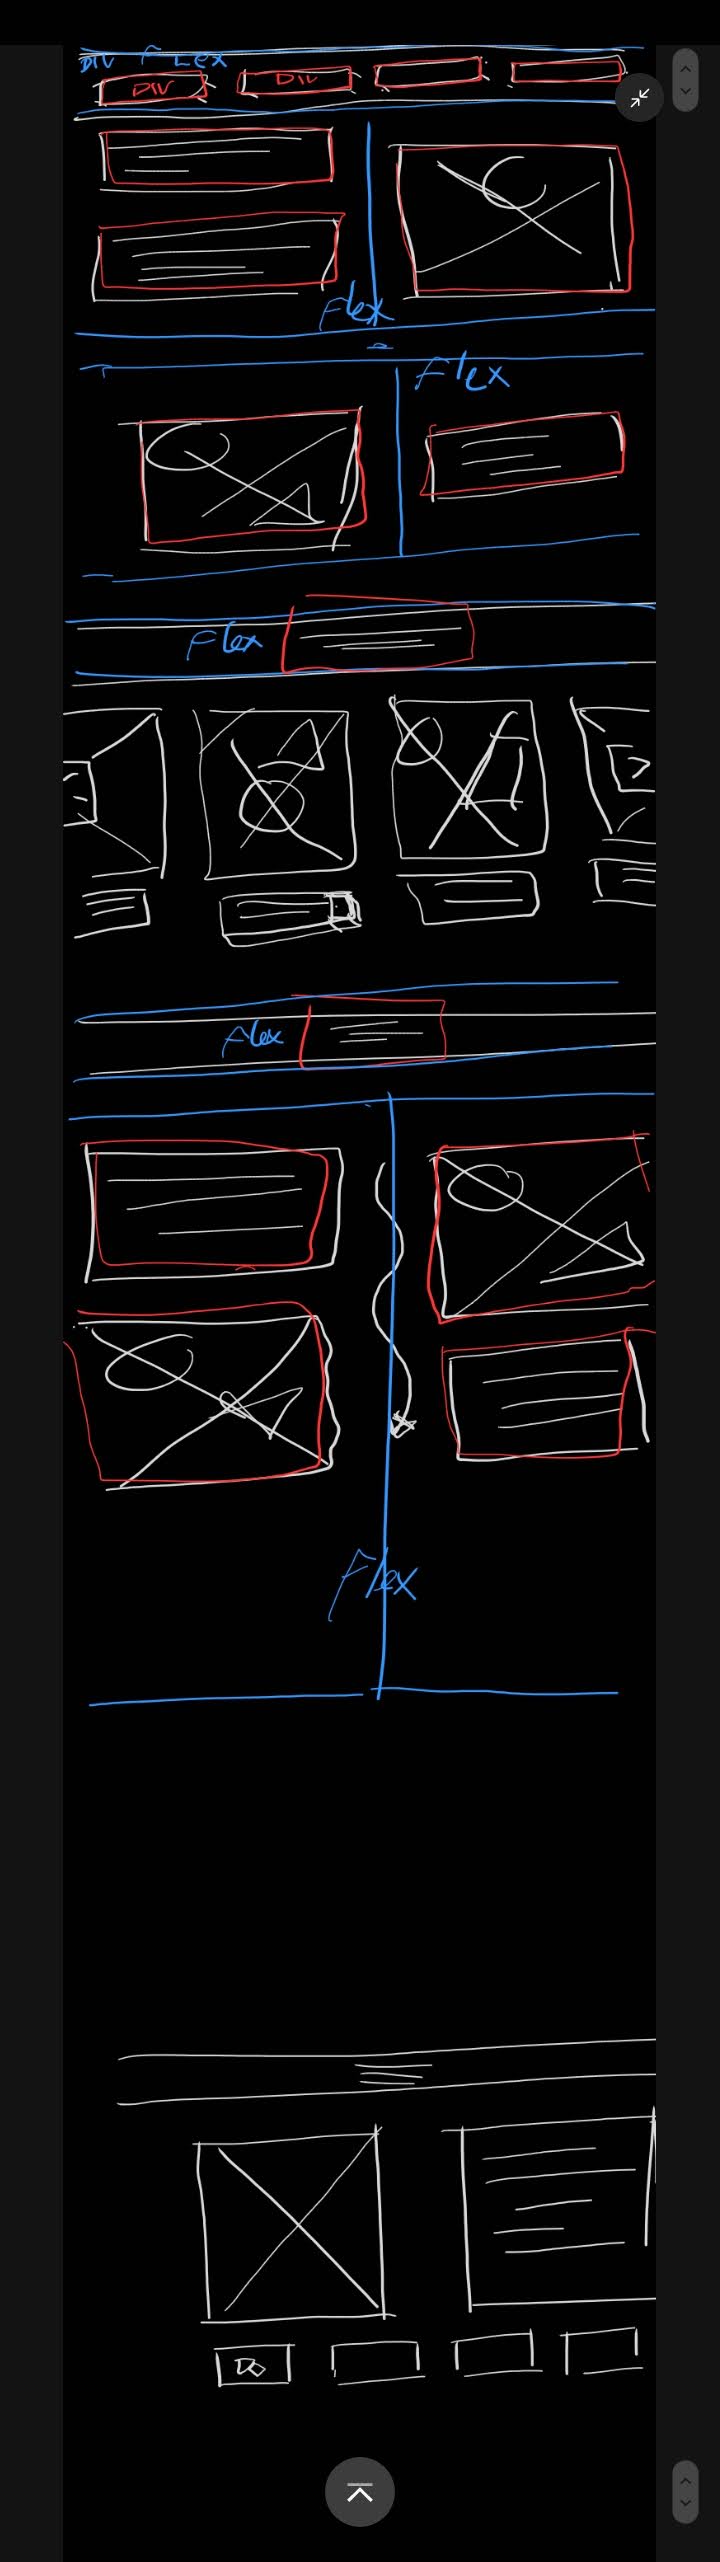 DIV FLex
DIV DIV
Flex
Flex
Flex
Flex
Flex